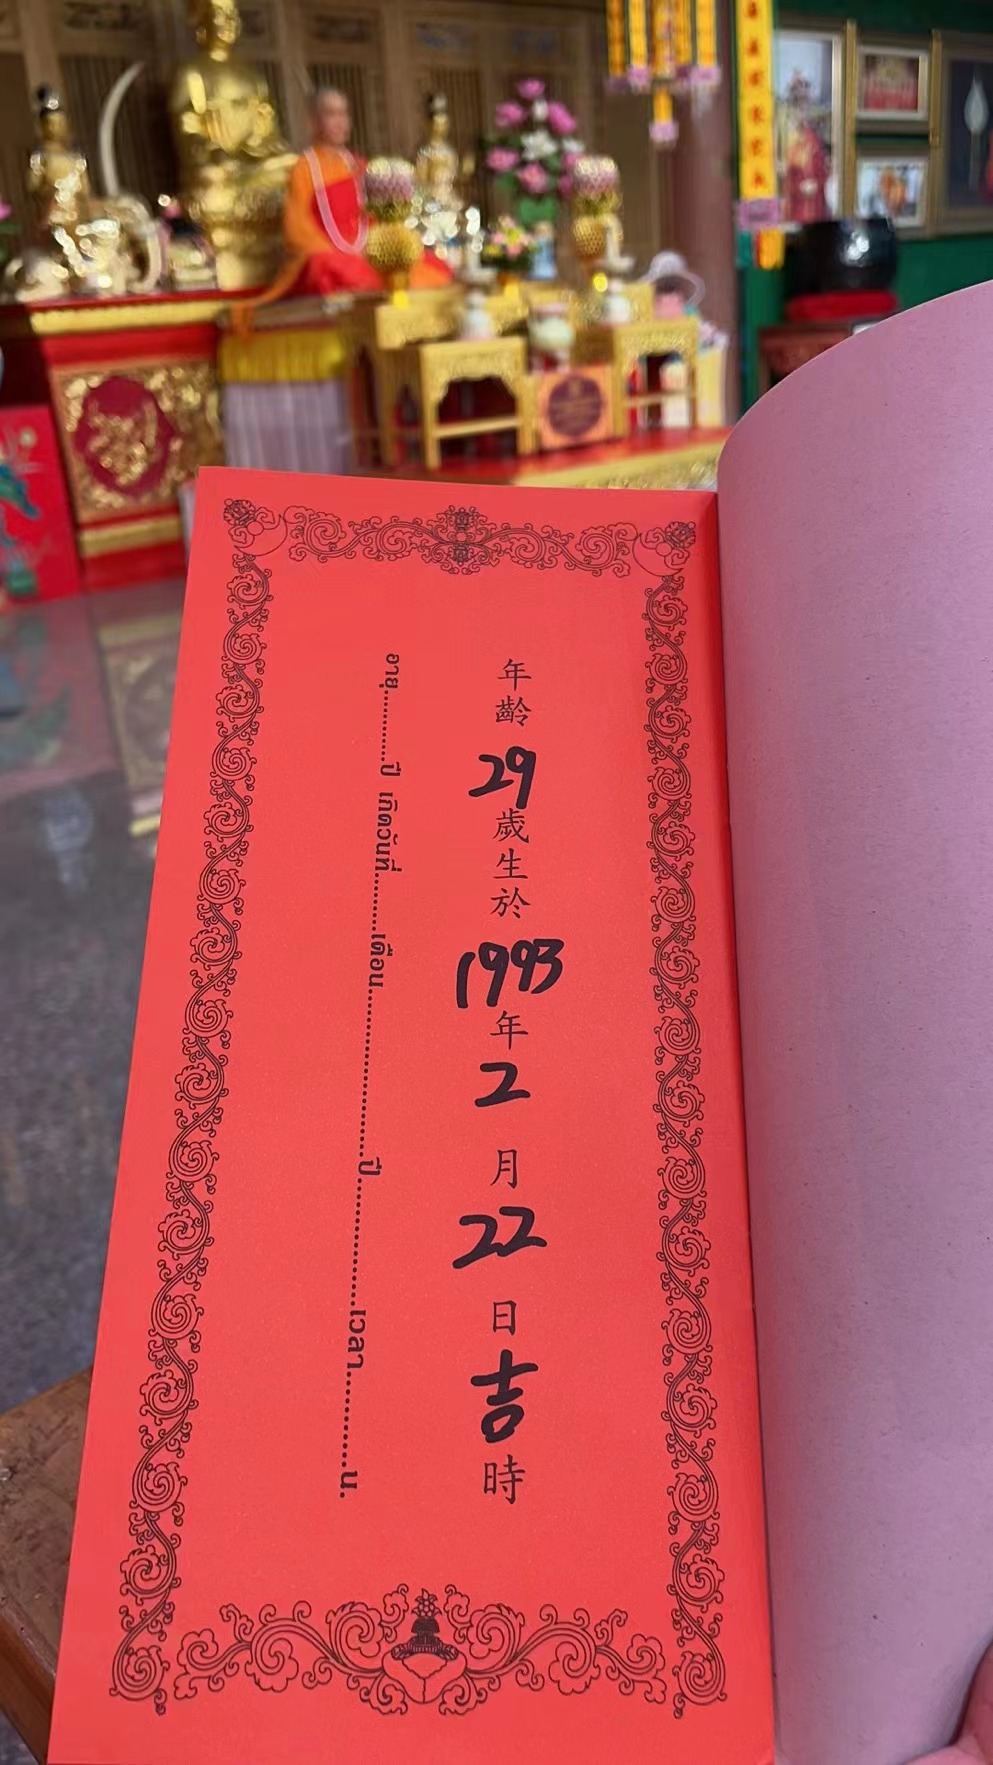 年齡29歲生於1993年2月22日吉時
อายุ............ปี เกิดวันที่..........เดือน............................ปี.....................เวลา................น.